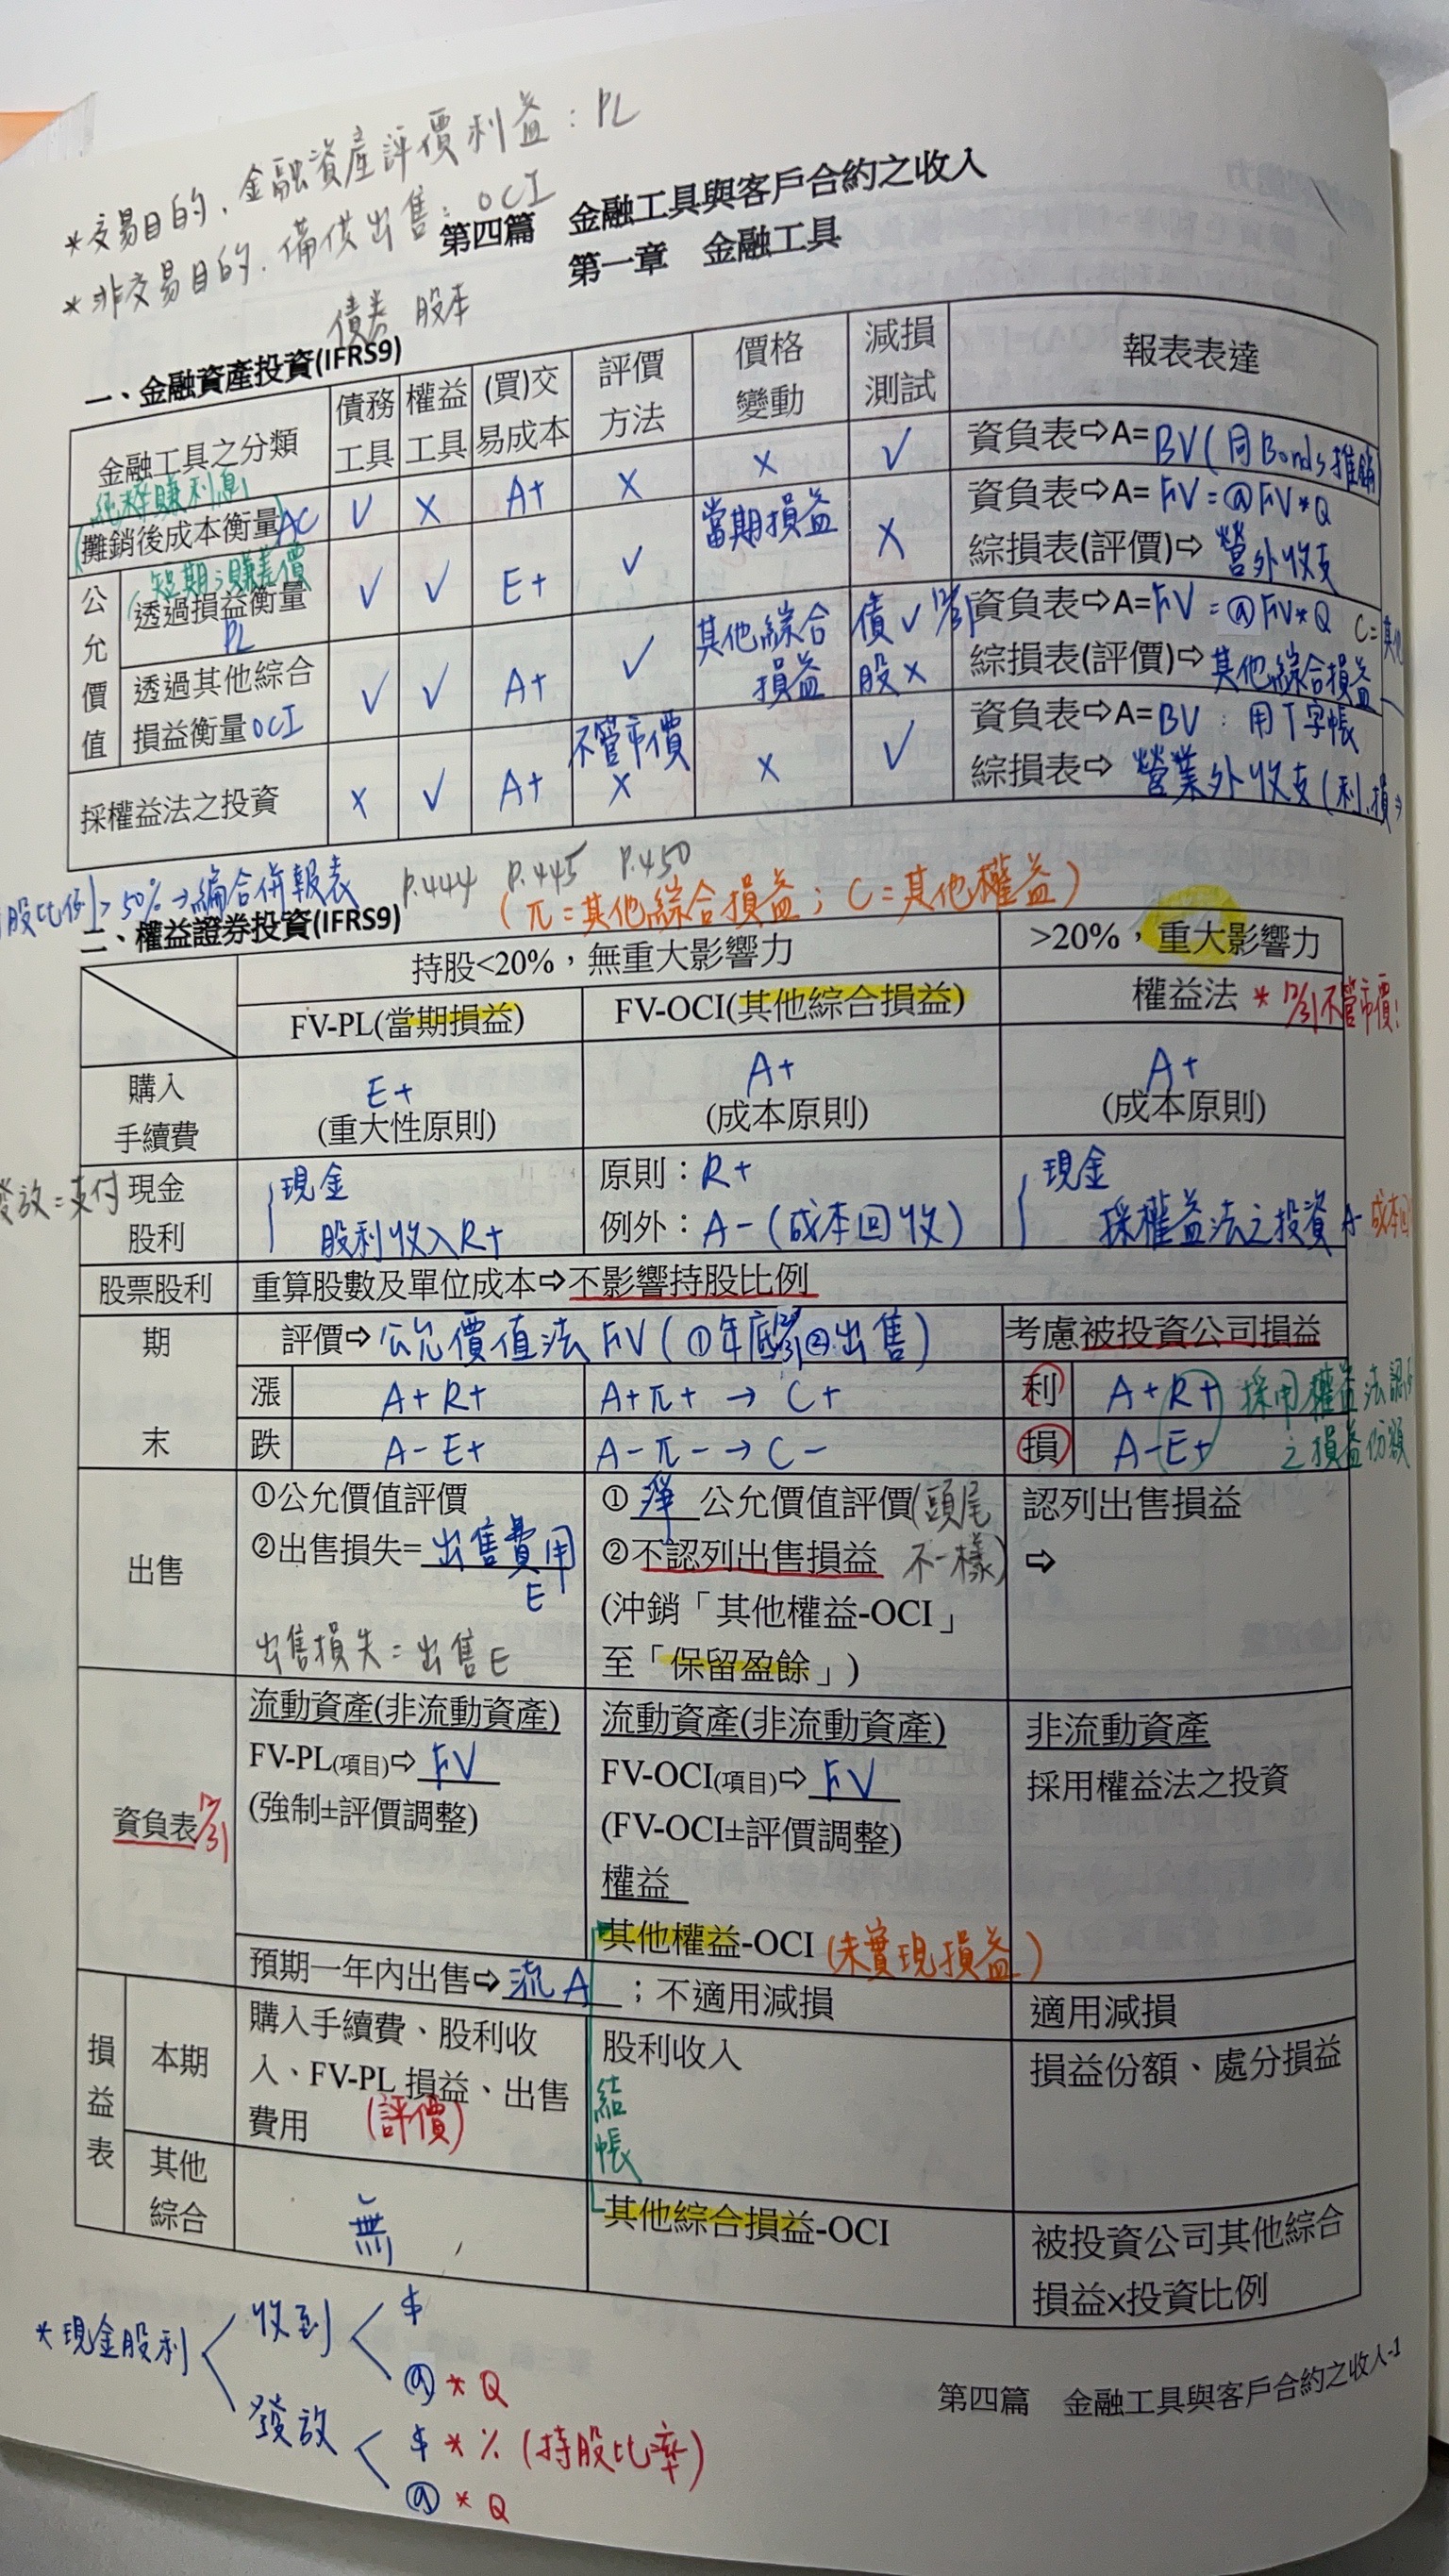 *交易目的，金融資產評價利益：PL
*非交易目的，備供出售：OCI
第四篇 金融工具與客戶合約之收入
第一章 金融工具
債券 股本
一、金融資產投資(IFRS9)
金融工具之分類 債務工具 權益工具 (買)交易成本 評價方法 價格變動 減損測試 報表表達
純粹賺利息
攤銷後成本衡量AC V X A+ X X V 資負表⇨A=BV(同Bonds推銷
公允價值
(短期；賺差價
透過損益衡量 PL V V E+ V 當期損益 X 資負表⇨A=FV=@FV*Q
綜損表(評價)⇨營外收支
透過其他綜合損益衡量OCI V V A+ V 其他綜合損益 債V 股X 資負表⇨A=FV=@FV*Q C=其他
綜損表(評價)⇨其他綜合損益
採權益法之投資 X V A+ 不管市價 X X V 資負表⇨A=BV：用T字帳
綜損表⇨營業外收支(利、損→
股比例>50%→編合併報表 P.444 P.445 P.450
(π=其他綜合損益；C=其他權益)
二、權益證券投資(IFRS9)
持股<20%，無重大影響力 >20%，重大影響力
FV-PL(當期損益) FV-OCI(其他綜合損益) 權益法 *12/31不管市價!
購入手續費 E+ (重大性原則) A+ (成本原則) A+ (成本原則)
發放=支付
現金股利 現金 股利收入R+ 原則：R+ 例外：A-(成本回收) 現金 採權益法之投資A- 成本回
股票股利 重算股數及單位成本⇨不影響持股比例
期末 評價⇨公允價值法FV(①年底②出售) 考慮被投資公司損益
漲 A+R+ A+π+→C+ 利 A+R+ 採用權益法認列
跌 A-E+ A-π-→C- 損 A-E+ 之損益份額
出售
①公允價值評價
②出售損失=出售費用 E
出售損失=出售E
①淨 公允價值評價(頭尾
②不認列出售損益 不一樣)
(沖銷「其他權益-OCI」
至「保留盈餘」)
認列出售損益
⇨
資負表12/31
流動資產(非流動資產)
FV-PL(項目)⇨FV
(強制±評價調整)
流動資產(非流動資產)
FV-OCI(項目)⇨FV
(FV-OCI±評價調整)
權益
其他權益-OCI(未實現損益)
非流動資產
採用權益法之投資
預期一年內出售⇨流A；不適用減損 適用減損
損益表
本期
購入手續費、股利收
入、FV-PL損益、出售
費用 (評價)
股利收入
結帳
損益份額、處分損益
其他綜合
無
其他綜合損益-OCI
被投資公司其他綜合
損益x投資比例
*現金股利 收到 $
@*Q
發放 $*%(持股比率)
@*Q
第四篇 金融工具與客戶合約之收入-1